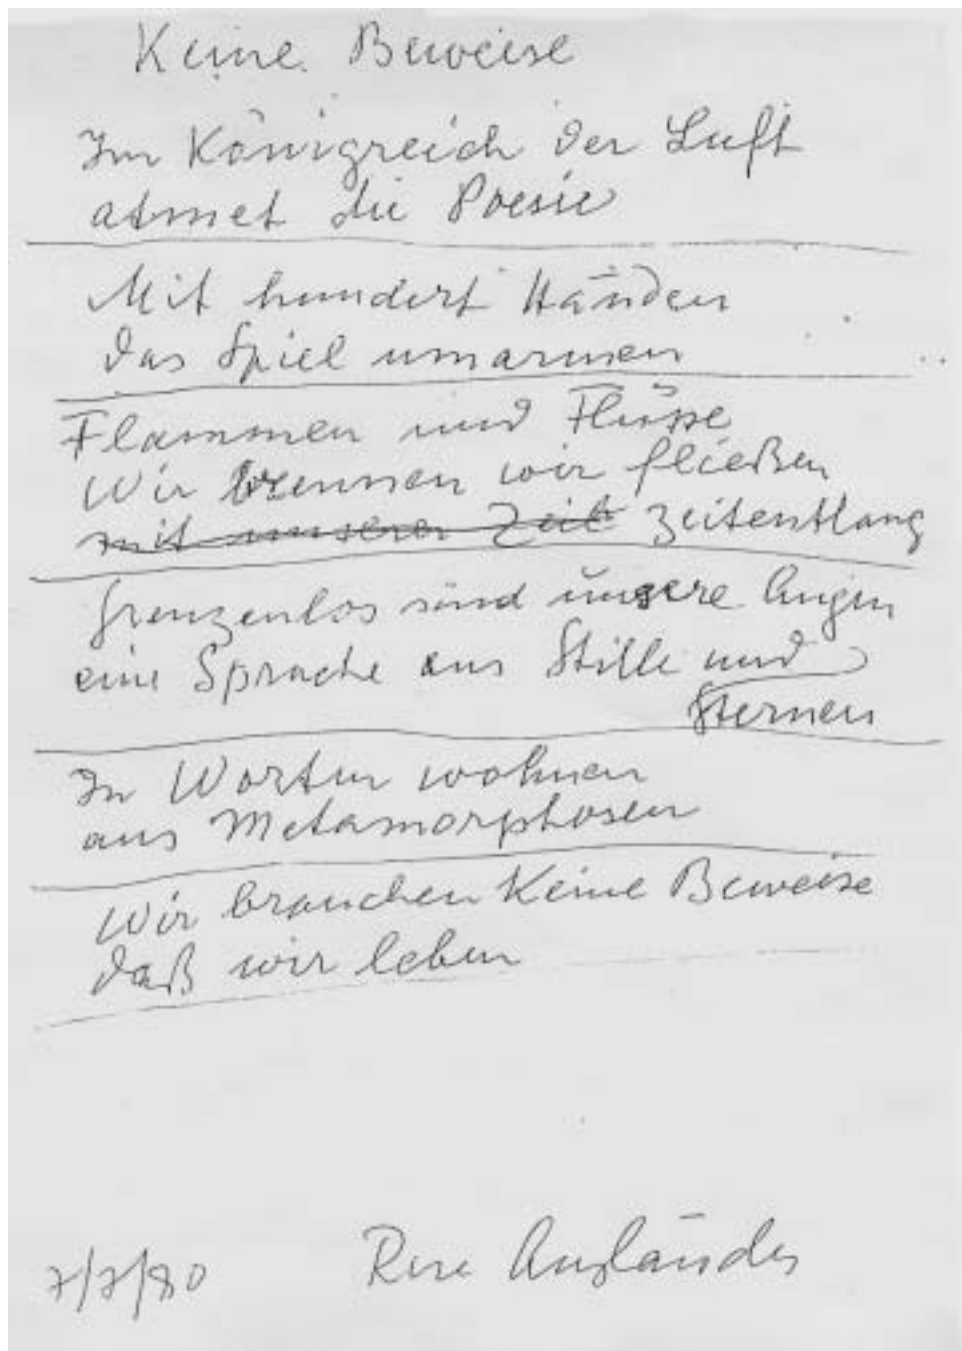 Keine Beweise
Im Königreich der Luft
atmet die Poesie
Mit hundert Händen
das Spiel umarmen
Flammen und Flüße
Wir brennen wir fließen
mit unserer Zeit zeitentlang
Grenzenlos sind unsere Augen
eine Sprache aus Stille und
Sternen
In Worten wohnen
aus Metamorphosen
Wir brauchen Keine Beweise
daß wir leben
7/7/80
Rose Ausländer